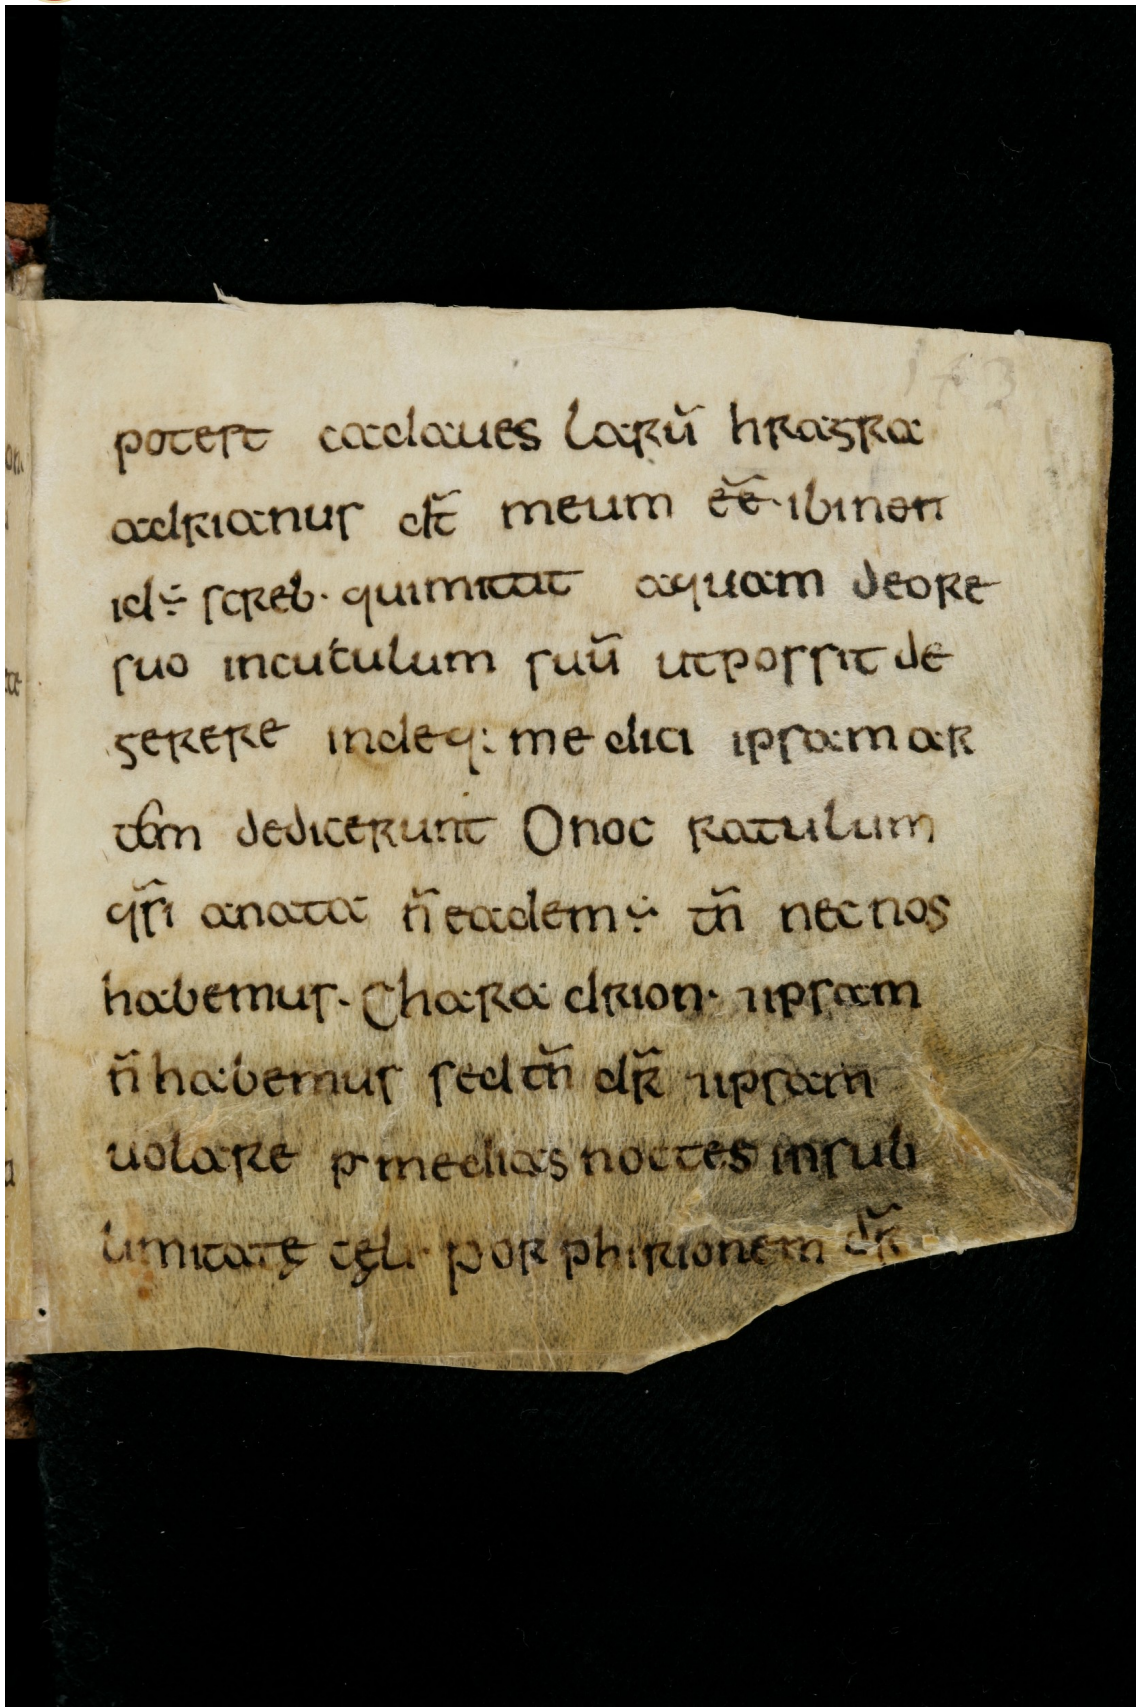 potest cadaues larū hragra
adrianus dr̄t meum ēē· ibinen
id÷ screb· quimitat aquam deore
suo incuculum suū utpossit de
gerere indeq: medici ipsam ar
tem dedicerunt Onoc ratulum
qr̄i anata n̄ eadem ÷ tn̄ nec nos
habemus· Chara drion· iipsam
n̄ habemus sed tn̄ dr̄ iipsam
uolare p medias noctes insub
limitatę cęli· por phirionem dr̄